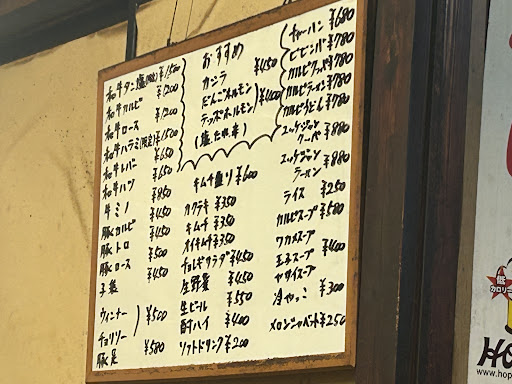 和牛タン塩(限定)¥1,500
和牛カルビ ¥1,200
和牛ロース ¥1,200
和牛ハラミ(限定)¥1,500
和牛レバー ¥650
和牛ハツ ¥650
牛ミノ ¥850
豚カルビ ¥450
豚トロ ¥500
豚ロース ¥450
子袋
ウィンナー
チョリソー
¥500
豚足 ¥580
おすすめ
カシラ ¥450
だんごホルモン
テッポーホルモン
¥400
(塩 たれ 辛)
キムチ盛り ¥600
カクテキ ¥350
キムチ ¥350
オイキムチ ¥350
チョレギサラダ ¥450
生野菜 ¥450
生ビール ¥550
酎ハイ ¥400
ソフトドリンク ¥200
チャーハン ¥680
ビビンバ ¥780
カルビクッパ ¥780
カルビラーメン ¥780
カルビうどん ¥780
ユッケジャン
クーパ ¥880
ユッケジャン
ラーメン ¥880
ライス ¥250
カルビスープ ¥580
ワカメスープ
玉子スープ
ヤサイスープ
¥400
冷やっこ ¥300
メロンシャーベット ¥250
低
カロリー
HO
www.hop